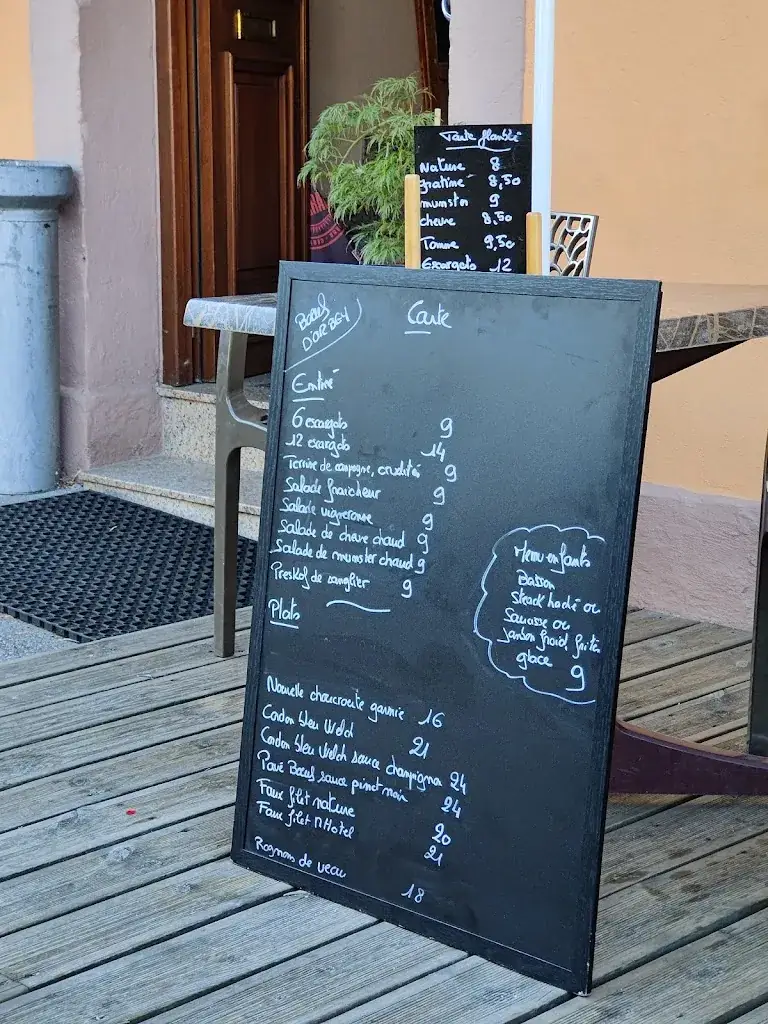 Tarte flambée
Nature 8
gratiné 8,50
munster 9
chevre 8,50
Tomme 9,50
Escargots 12
Bœuf
D'ORBEY
Carte
Entrée
6 escargots 9
12 escargots 14
Terrine de campagne, crudités 9
Salade fraicheur 9
Salade vigneronne 9
Salade de chevre chaud 9
Salade de munster chaud 9
Preskof de sanglier 9
Plats
Menu enfants
Boisson
Steack haché ou
Saucisse ou
Jambon froid, frites
glace 9
Nouvelle choucroute garnie 16
Cordon bleu Welch 21
Cordon bleu Welch sauce champignon 24
Pavé Bœuf sauce pinot noir 24
Faux filet nature 20
Faux filet M Hotel 21
Rognons de veau 18